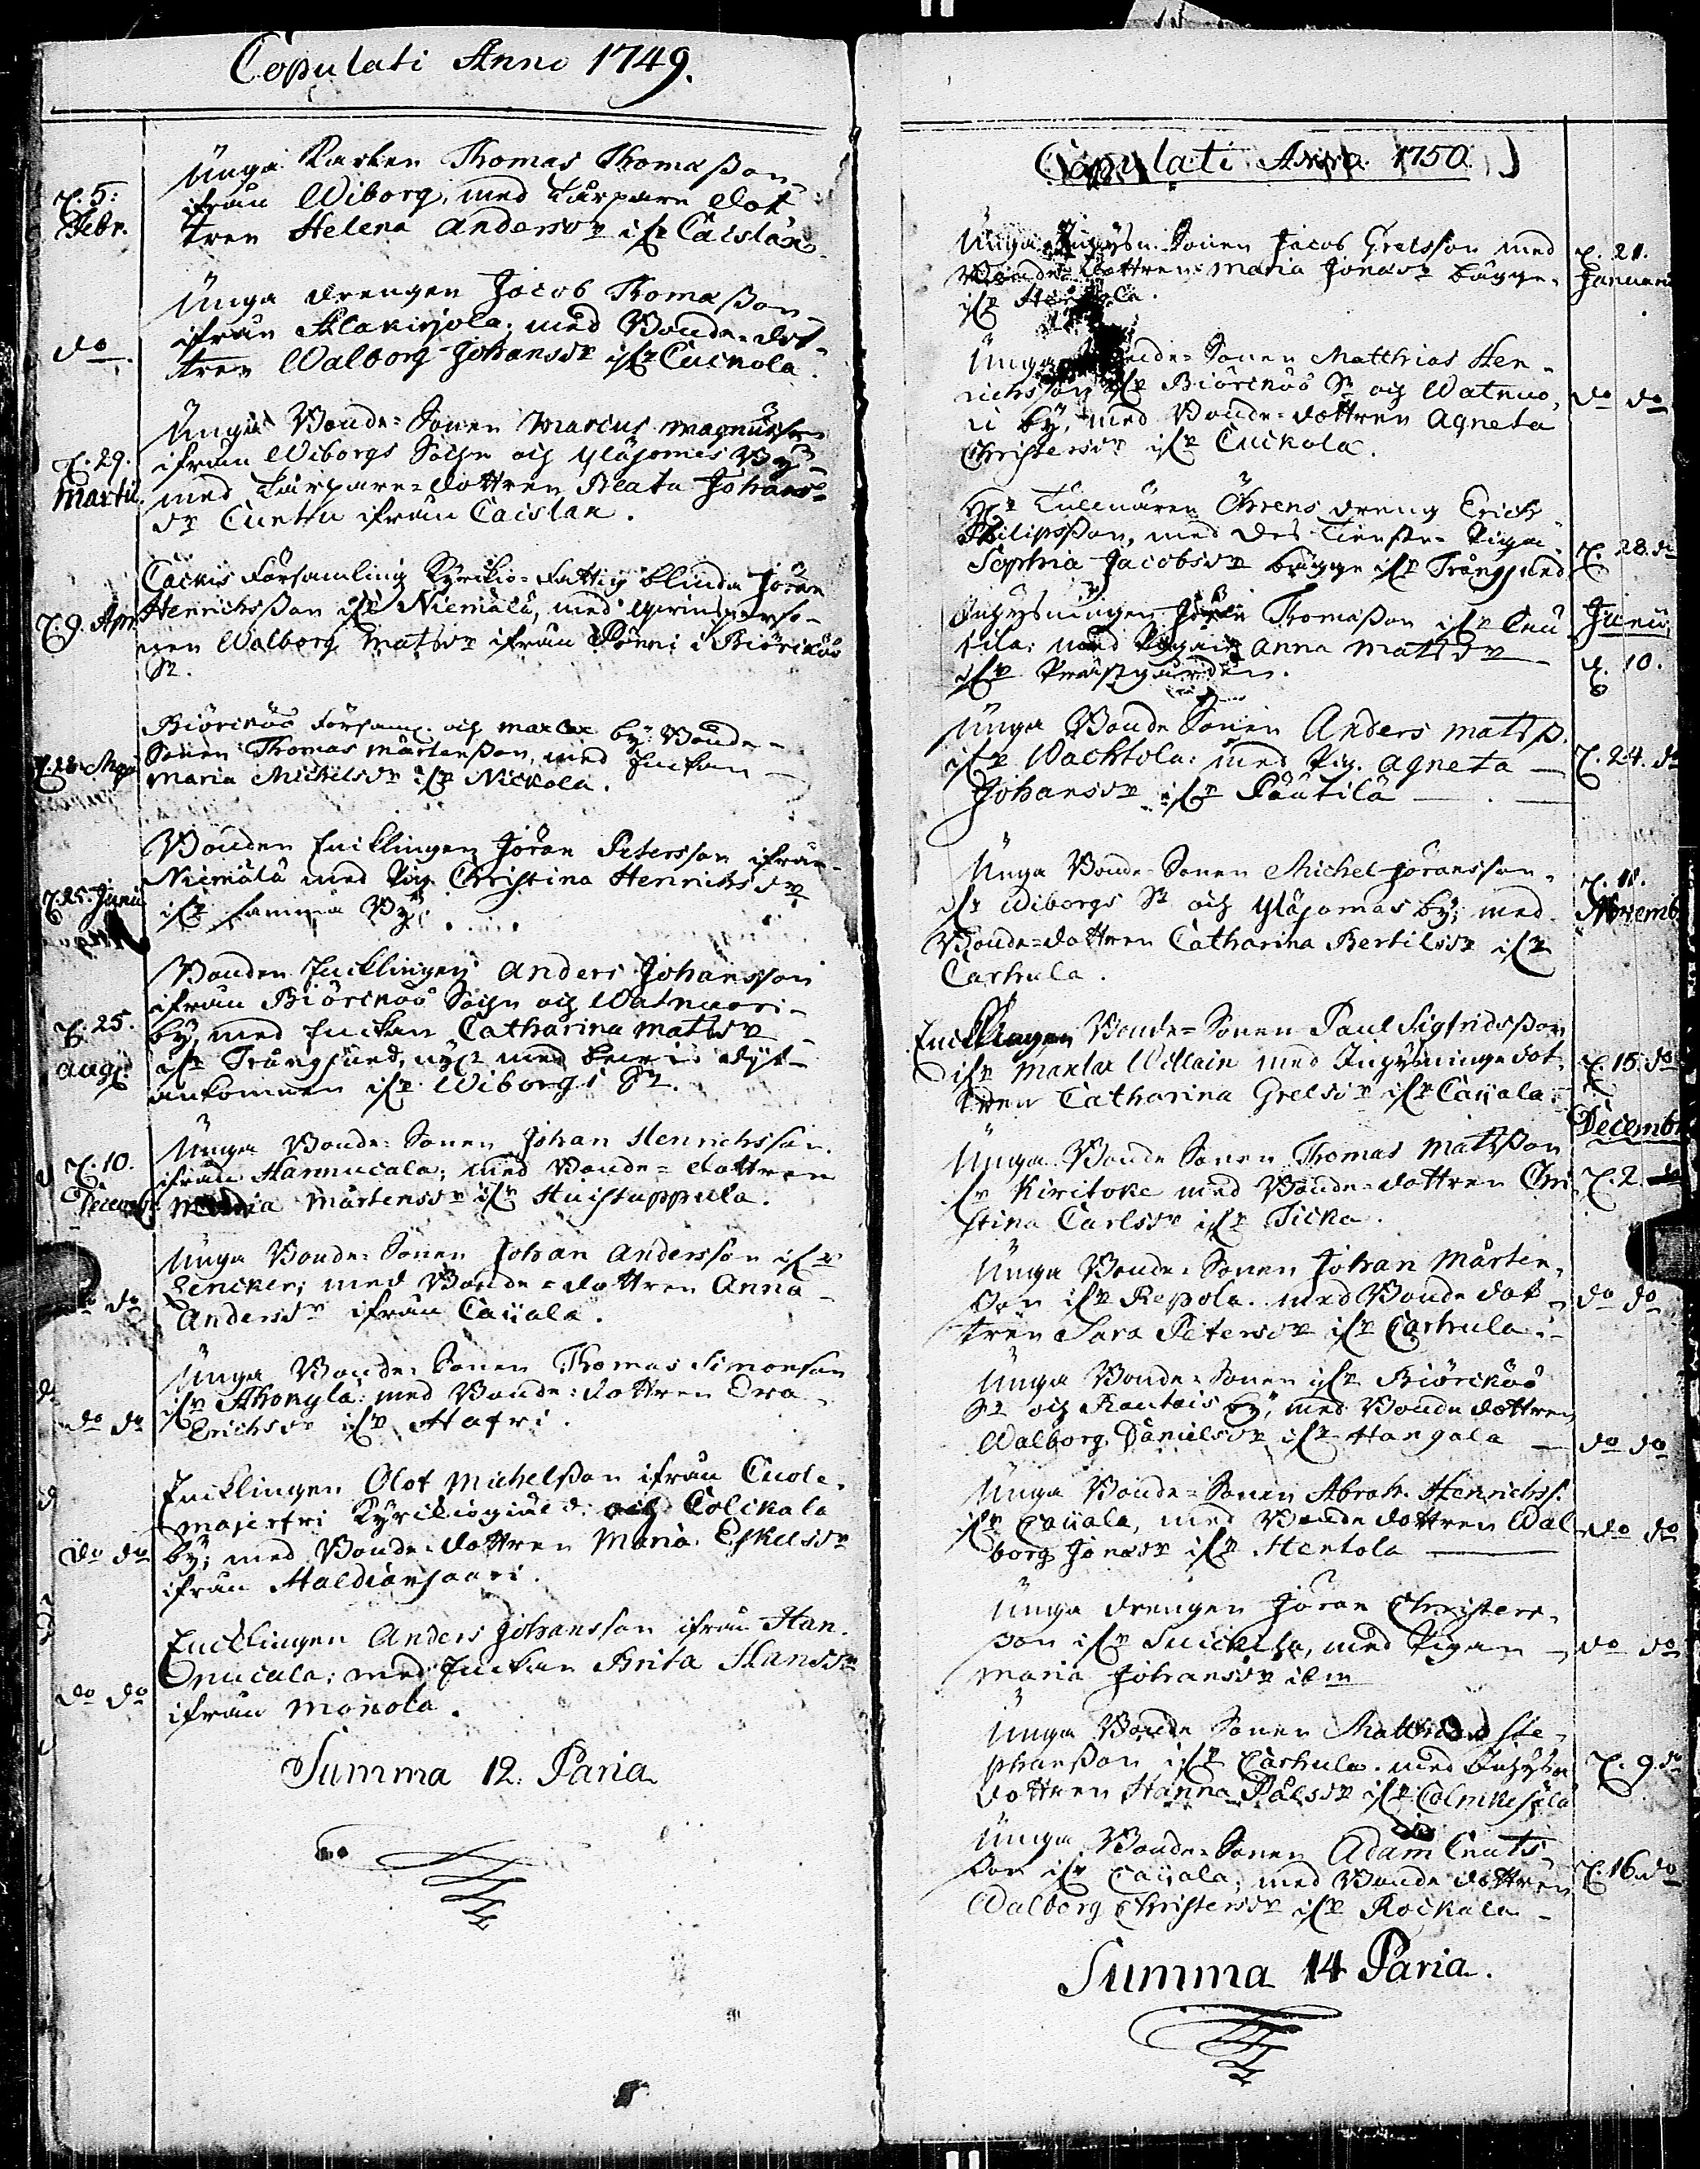 Copulati Anno 1749.
d. 5.
Febr.
Unga Karlen Thomas Thomæsson
ifrån Wiborg, med Torpare dot-
tren Helena Andersdr ifr Caislax.
do
Unga drengen Jacob Thomæsson
ifrån Alakirjola, med Bonde-dot-
tren Walborg Johansdr ifr Cuckola.
d. 29.
Martii
Unga Bonde-Sonen Marcus Magnusson
ifrån Wiborgs Sochn och Yläsomes By
med Torpare-dottren Beata Johans-
dr ifrån Caislax.
d. 9. Apr.
Cackis Församling Kyrckio-Fattig blinda Jöran
Henrichsson ifr Niemälä, med qwinsperso-
nen Walborg Matsdr ifrån Pönni i Biörckös
Sn.
d. 28. Maji
Biörckös Församl. och Maxlax by Bonde-
Sonen Thomas Mårtensson, med Enckan
Maria Michelsdr ifr Nickola.
d. 25. Junii
Bonden Encklingen Jöran Petersson ifrån
Niemälä med Pig. Christina Henrichsdr
ifr samma By.
d. 25.
Aug.
Bonden Encklingen Anders Johansson
ifrån Biörckös Sochn och Watnuori
by, med Enckan Catharina Matsdr
ifr Trångsund, med bewis dijt
ankommen ifr Wiborgs Sn.
d. 10.
Decemb.
Unga Bonde-Sonen Johan Henrichsson
ifrån Hannucala; med Bonde-dottren
Maria Mårtensdr ifr Huistuppula.
do do
Unga Bonde-Sonen Johan Andersson ifr
med Bonde-dottren Anna
Andersdr ifrån Caijala.
do do
Unga Bonde-Sonen Thomas Simonsson
ifr Ahonylä: med Bonde-dottren
Erichsdr ifr Hatri.
do do
Encklingen Olof Michelsson ifrån Cuole-
majerfvi och Colickala
by; med Bonde-dottren Maria Eskelsdr
ifrån Haldiansaari.
do do
Encklingen Anders Johansson ifrån Han-
nucala; med Enckan Brita Hansdr
ifrån Monola.
Summa 12. Paria
Copulati Anno 1750.
Unga Inhyses-Sonen Jacob Grelsson med
Bonde-dottren Maria Jonasdr bägge
ifr
d. 21.
Januarii
Unga Bonde-Sonen Matthias Hen-
richsson ifr Biörckös Sn och Watnuo-
ri by, med Bonde-dottren Agneta
Christersdr ifr Cuckola.
do do
Hr Tullnären Öhrens dreng Erich
Philipsson, med des Tienste-Piga
Sophia Jacobsdr bägge ifr Trångsund
d. 28. do
Inhysningen Jöran Thomæsson ifr
med Pigan Anna Matsdr
ifr Prästgården.
Junii
d. 10.
Unga Bonde Sonen Anders Matss.
ifr Wachtola: med Pig. Agneta
Johansdr ifr Pautila
d. 24. do
Unga Bonde-Sonen Michel Jöransson
ifr Wiborgs Sn och Yläsomas by; med
Bonde-dottren Catharina Bertilsdr ifr
Carhula.
d. 18.
Novemb.
Encklingen Bonde-Sonen Paul Sigfridsson
ifr Maxlax med Inhysninge dot-
tren Catharina Grelsdr ifr Caijala.
d. 15. do
Unga Bonde Sonen Thomas Matsson
ifr Kiritoke med Bonde-dottren Chri-
stina Carlsdr ifr Ticka.
Decemb.
d. 2.
Unga Bonde-Sonen Johan Mårten-
son ifr Repola. med Bonde dot-
tren Sara Petersdr ifr Carhula.
do do
Unga Bonde-Sonen ifr Biörckös
Sn och Rautais by; med Bonde dottren
Walborg Danielsdr ifr Hangala
do do
Unga Bonde-Sonen Abrah. Henrichss.
ifr Caijala, med Bonde dottren Wal-
borg Jonasdr ifr Hentola
do do
Unga drengen Jöran Christers-
son ifr med Pigan
Maria Johansdr ibm
do do
Unga Bonde Sonen Matthias Ste-
phansson ifr Carhula. med Inhyses
dottren Hanna Pålsdr ifr
d. 9. do
Unga Bonde-Sonen Adam Cnuts-
son ifr Caijala, med Bonde dottren
Walborg Christersdr ifr Rockala
d. 16. do
Summa 14 Paria.